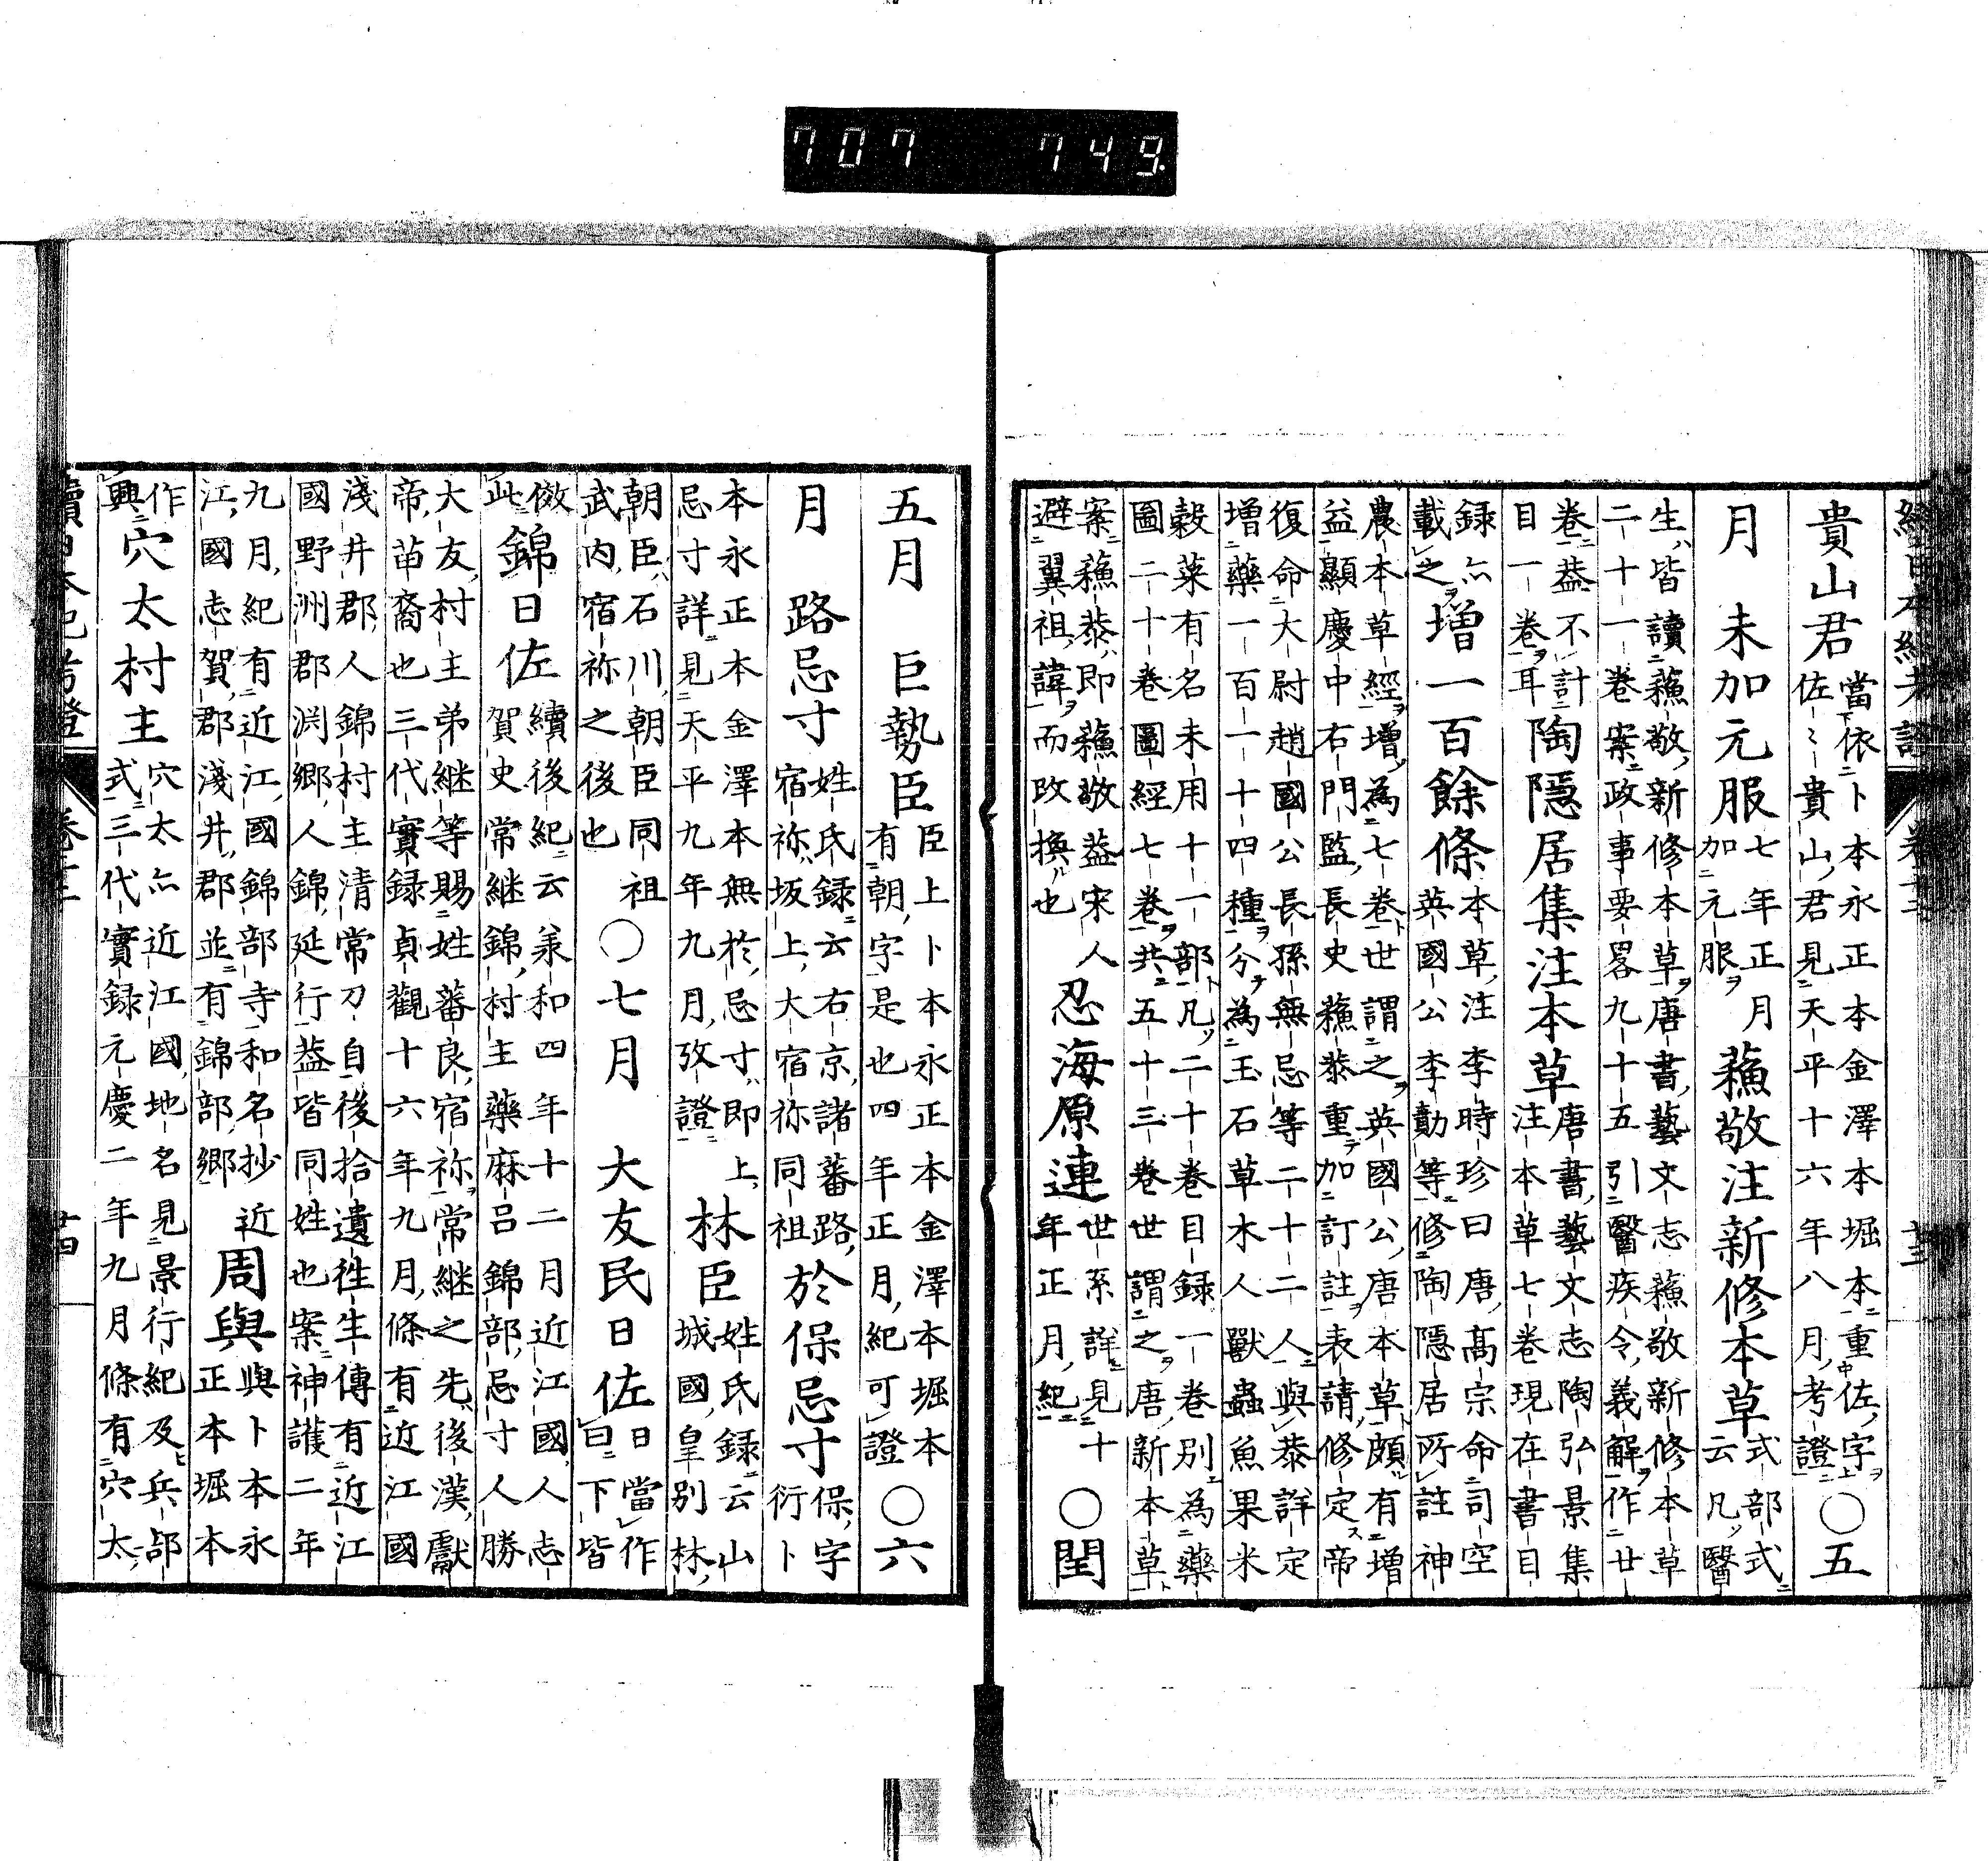 707 749
貴山君當依卜本永正本金澤本堀本重佐字
佐〻貴山君見天平十六年八月考證○五
月 未加元服七年正月
加元服 蘓敬注新修本草式部式
云凡醫
生皆讀蘓敬新修本草唐書藝文志蘓敬新修本草
二十一卷案政事要畧九十五引醫疾令義解作廿
卷葢不計
目一卷耳 陶隱居集注本草唐書藝文志陶弘景集
注本草七卷現在書目
録亦
載之 增一百餘條本草注李時珍曰唐髙宗命司空
英國公李勣等修陶隱居所註神
農本草經增為七卷世謂之英國公唐本草頗有增
益顯慶中右門監長史蘓恭重加訂註表請修定帝
復命大尉趙國公長孫無忌等二十二人與恭詳定
增藥一百一十四種分為玉石草木人獸蟲魚果米
穀菜有名未用十一部凡二十卷目録一卷別為藥
圖二十卷圖經七卷共五十三卷世謂之唐新本草
案蘓恭即蘓敬葢宋人
避翼祖諱而改換也 忍海原連世系詳見十
年正月紀 ○閏
五月 巨勢臣臣上卜本永正本金澤本堀本
有朝字是也四年正月紀可證 ○六
月 路忌寸姓氏録云右京諸蕃路
宿祢坂上大宿祢同祖 於保忌寸保字
衍卜
本永正本金澤本無於忌寸即上
忌寸詳見天平九年九月攷證 林臣姓氏録云山
城國皇別林
朝臣石川朝臣同祖
武内宿祢之後也 ○七月 大友民日佐日當作
曰下皆
倣
此 錦日佐續後紀云承和四年十二月近江國人志
賀史常継錦村主藥麻吕錦部忌寸人勝
大友村主弟継等賜姓蕃良宿祢常継之先後漢獻
帝苗裔也三代實録貞觀十六年九月條有近江國
淺井郡人錦村主清常刀自後拾遺徃生傳有近江
國野洲郡渕郷人錦延行葢皆同姓也案神護二年
九月紀有近江國錦部寺和名抄近
江國志賀郡淺井郡並有錦部郷 周與與卜本永
正本堀本
作
興 穴太村主穴太亦近江國地名見景行紀及兵部
式三代實録元慶二年九月條有穴太